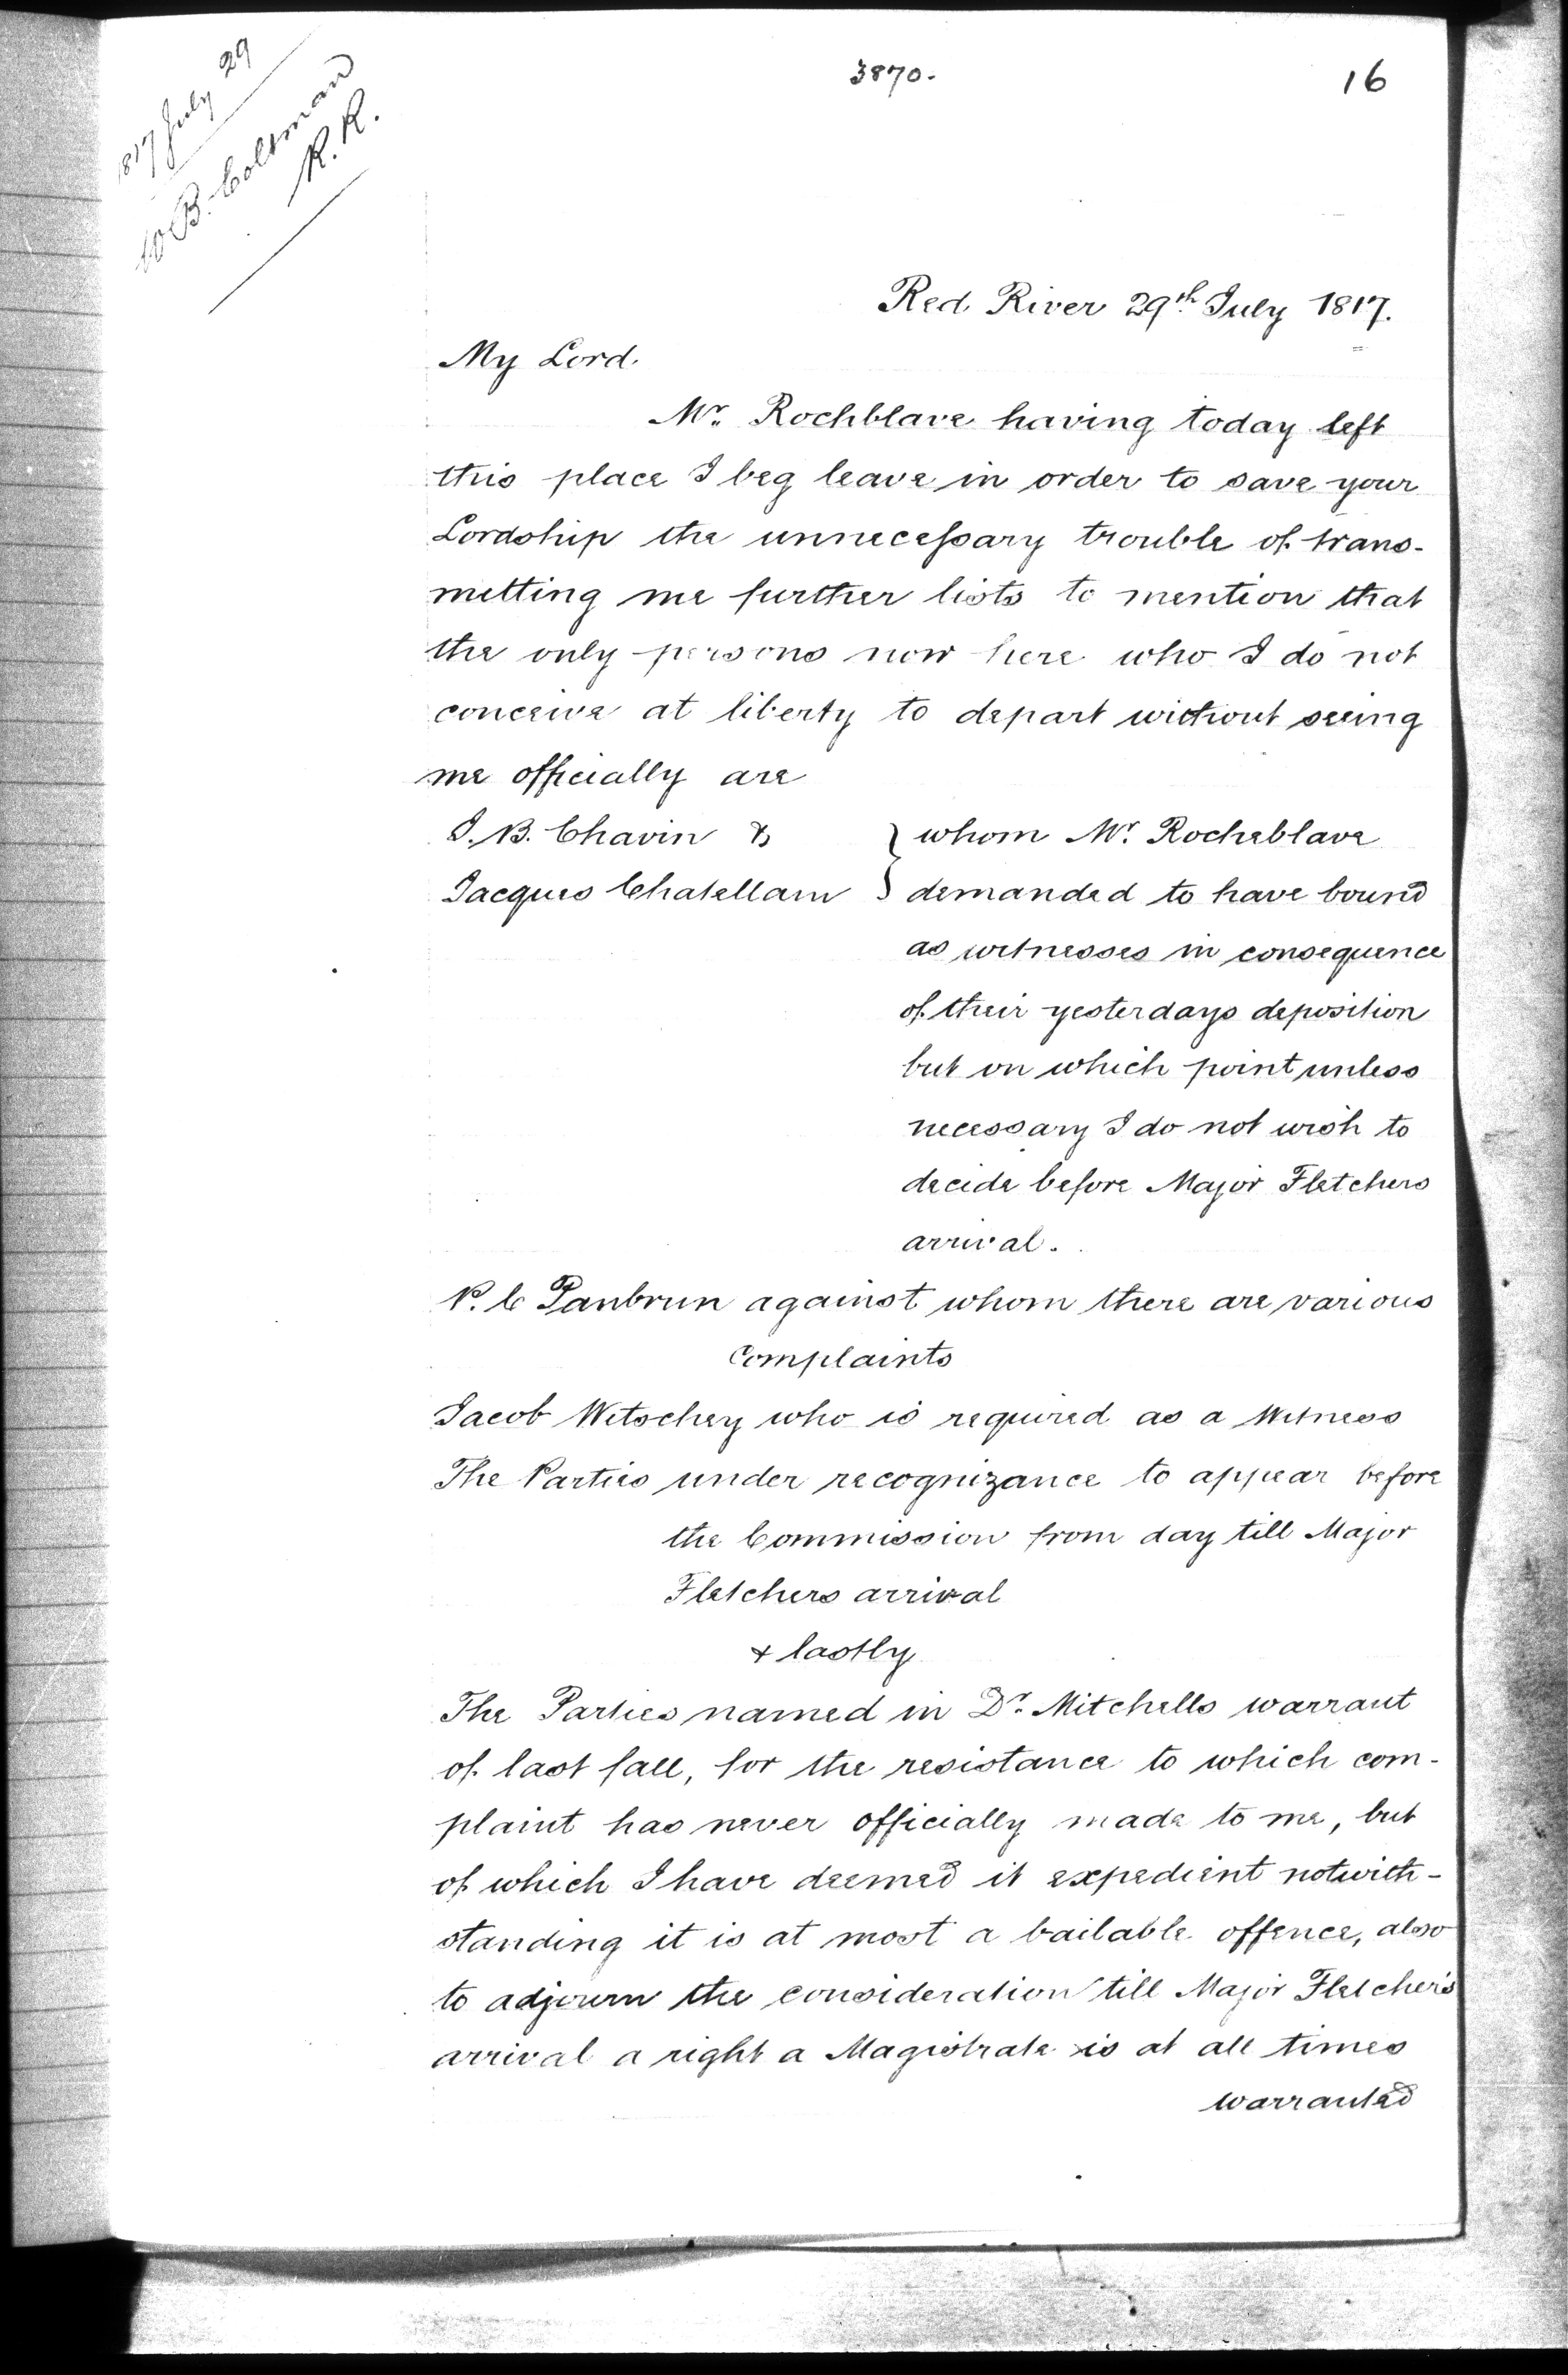 3870.
16
1817 July 29
W B. Coltman
R. R.
Red River 29th July 1817.
My Lord.
Mr. Rochblave having today left
this place I beg leave in order to save your
Lordship the unnecessary trouble of trans-
mitting me further lists to mention that
the only persons now here who I do not
conceive at liberty to depart without seeing
me officially are
J. B. Chavin & } whom Mr. Rocheblave
Jacques Chatellam } demanded to have bound
as witnesses in consequence
of their yesterdays deposition
but on which point unless
necessary I do not wish to
decide before Major Fletchers
arrival.
P. C Panbrun against whom there are various
Complaints
Jacob Witschey who is required as a Witness
The Parties under recognizance to appear before
the Commission from day till Major
Fletchers arrival
& lastly
The Parties named in Dr. Mitchells warrant
of last fall, for the resistance to which com-
plaint has never officially made to me, but
of which I have deemed it expedient notwith-
standing it is at most a bailable offence, also
to adjourn the consideration till Major Fletcher's
arrival a right a Magistrate is at all times
warranted